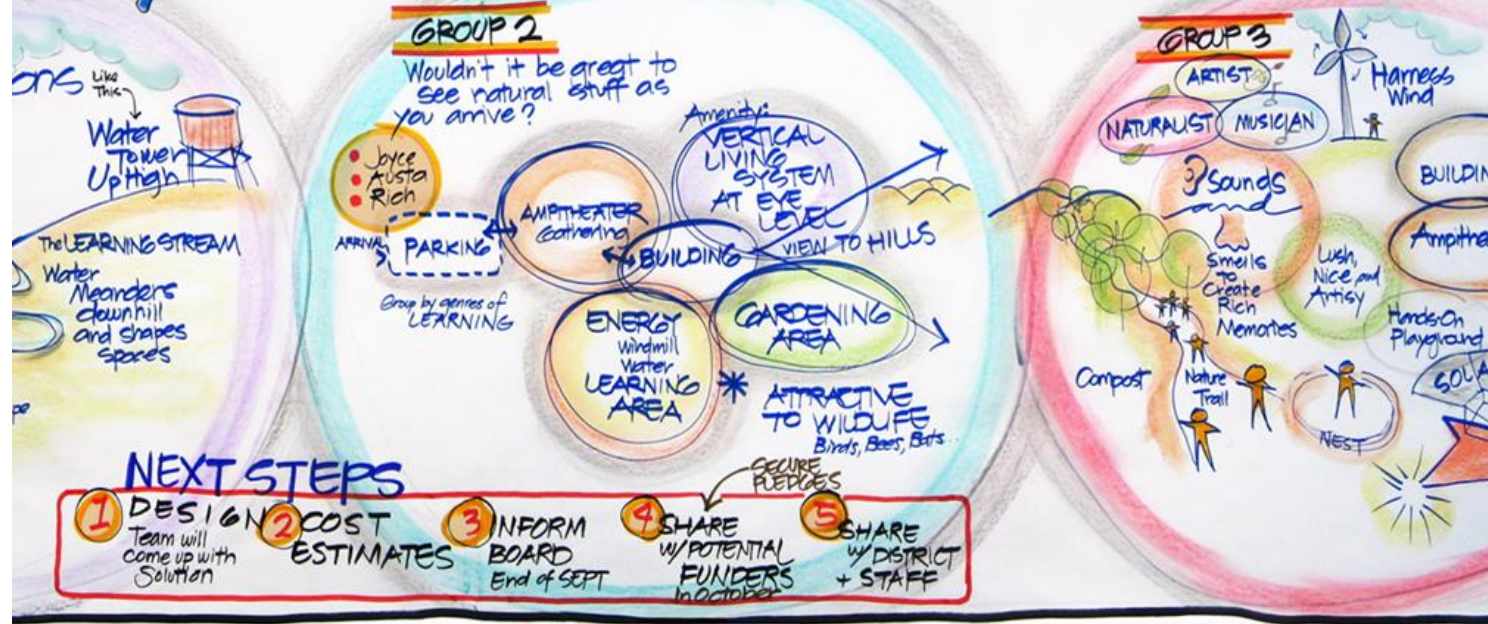 ons
Like
This
Water
Tower
Up High
The LEARNING STREAM
Water
Meanders
downhill
and shapes
spaces
pe
GROUP 2
Wouldn't it be great to
see natural stuff as
you arrive?
Joyce
Austa
Rich
ARRIVAL
PARKING
Group by genres of
LEARNING
AMPITHEATER
Gathering
Amenity:
VERTICAL
LIVING
SYSTEM
AT EYE
LEVEL
BUILDING
VIEW TO HILLS
GARDENING
AREA
ENERGY
Windmill
Water
LEARNING
AREA
* ATTRACTIVE
TO WILDLIFE
Birds, Bees, Bats...
GROUP 3
ARTIST
NATURALIST
MUSICIAN
Harness
Wind
Sounds
and
Smells
to
Create
Rich
Memories
Lush,
Nice and
Artisy
BUILDIN
Ampithe
Hands-On
Playground
SOLA
Compost
Nature
Trail
NEST
NEXT STEPS
1 DESIGN
Team will
come up with
Solution
2 COST
ESTIMATES
3 INFORM
BOARD
End of SEPT
SECURE
PLEDGES
4 SHARE
W/POTENTIAL
FUNDERS
In October
5 SHARE
W/DISTRICT
+ STAFF